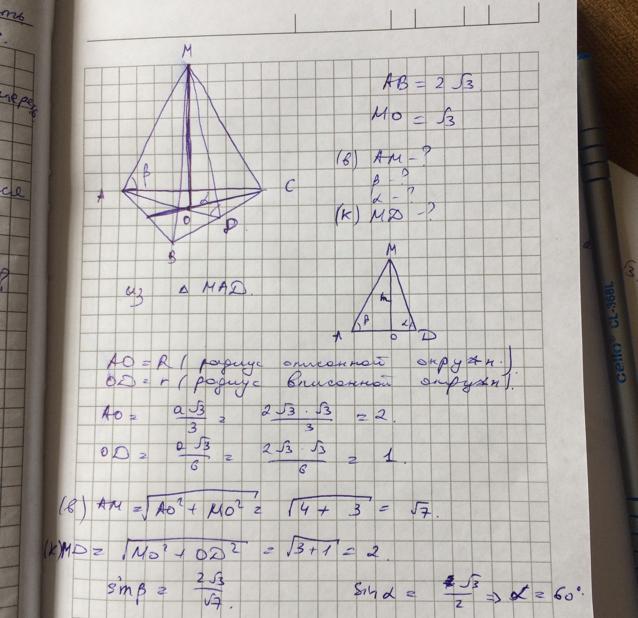 M
AB = 2√3
MO = √3
(в) AM - ?
β - ?
α - ?
(к) MD - ?
A β α C
O D
B
M
h
A β O α D
из △ MAD.
AO = R ( радиус описанной окружн.)
OD = r ( радиус вписанной окружн).
AO = a√3/3 = 2√3·√3/3 = 2.
OD = a√3/6 = 2√3·√3/6 = 1.
(в) AM = √(AO² + MO²) = √(4 + 3) = √7.
(к) MD = √(MO² + OD²) = √(3+1) = 2.
sin β = 2√3/√7. sin α = √3/2 ⇒ α = 60°.
cello CL-368L